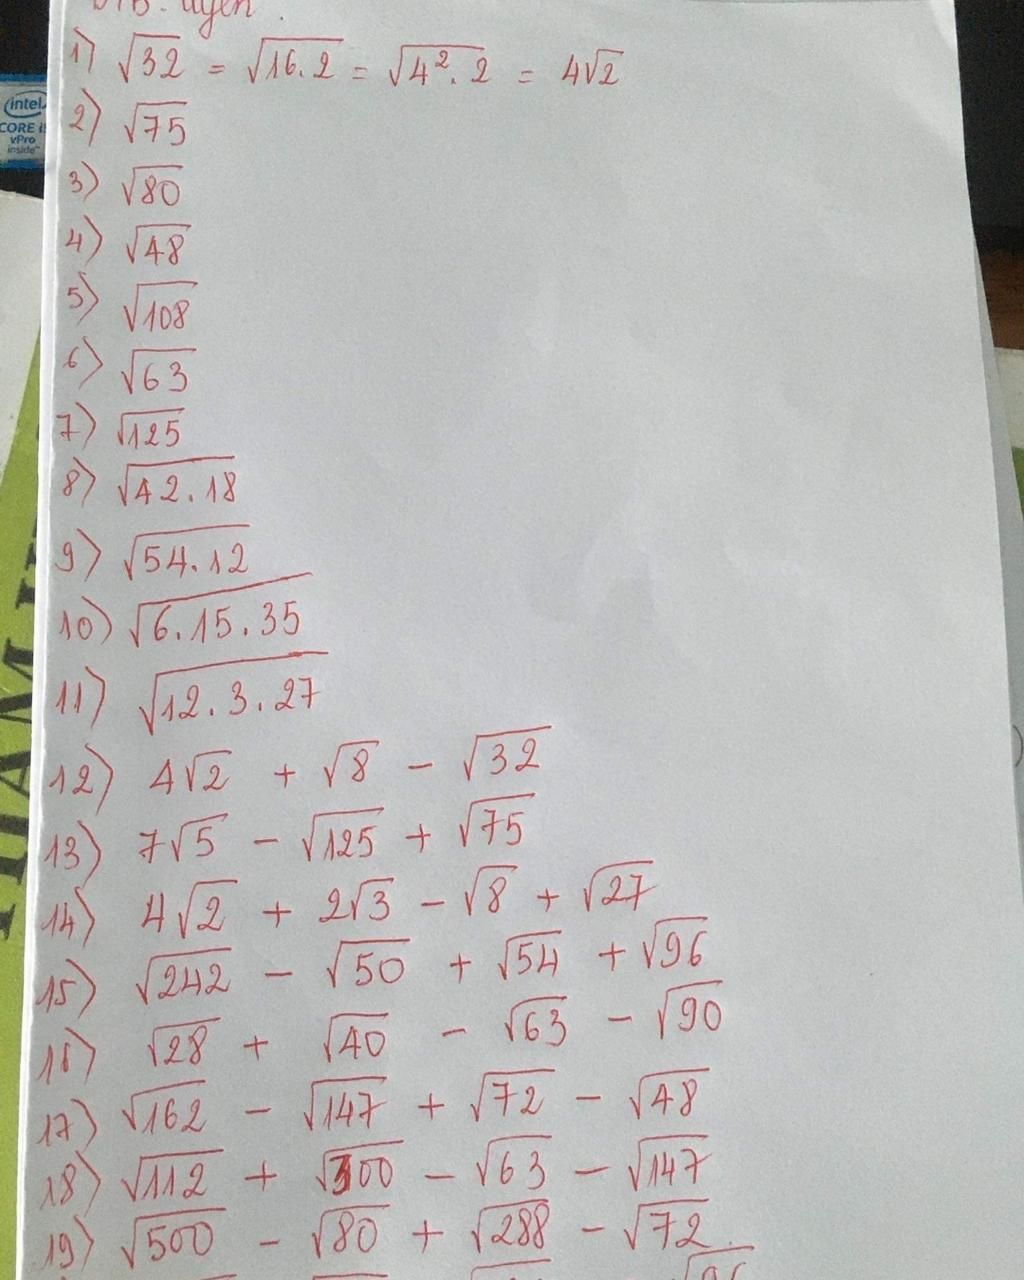 1) √32 = √16.2 = √4².2 = 4√2
intel
CORE
vPro
inside™
2) √75
3) √80
4) √48
5) √108
6) √63
7) √125
8) √42.18
9) √54.12
10) √6.15.35
11) √12.3.27
12) 4√2 + √8 - √32
13) 7√5 - √125 + √75
14) 4√2 + 2√3 - √8 + √27
15) √242 - √50 + √54 + √96
16) √28 + √40 - √63 - √90
17) √162 - √147 + √72 - √48
18) √112 + √300 - √63 - √147
19) √500 - √80 + √288 - √72